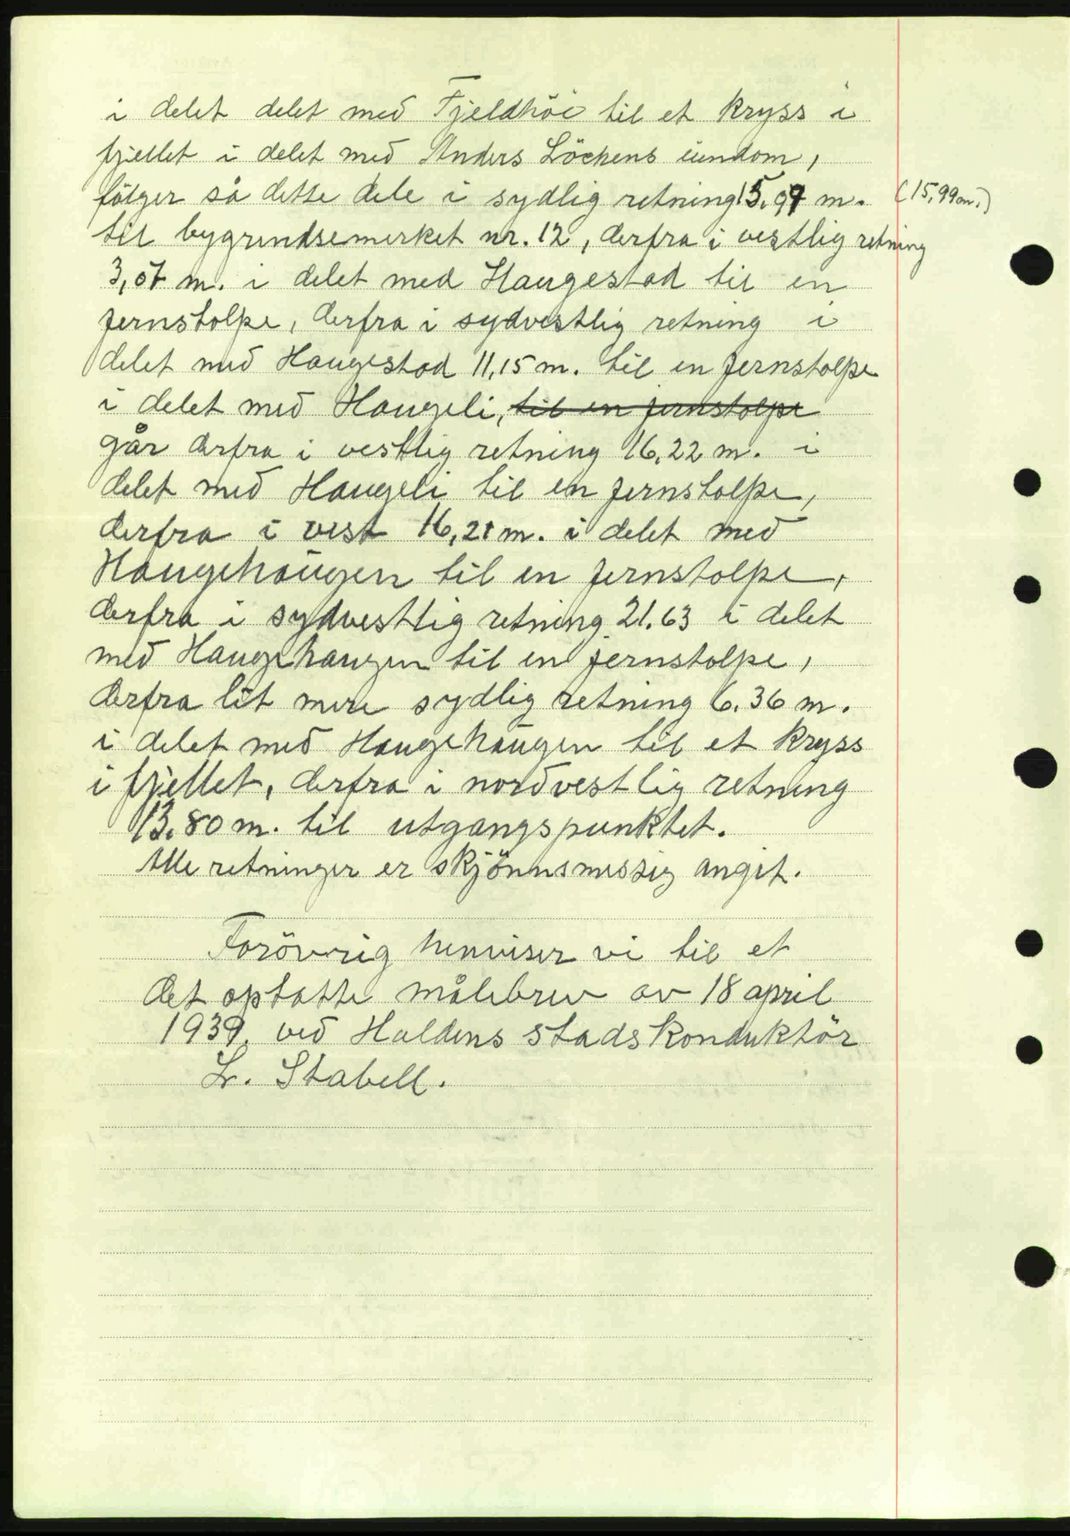 i delet delet med Fjeldhöi til et kryss i
fjellet i delet med Anders Löckens eiendom,
fölger så dette dele i sydlig retning 15,99 m. (15,99 m.)
til bygrendsemerket nr. 12, derfra i vestlig retning
3,07 m. i delet med Haugestad til en
jernstolpe, derfra i sydvestlig retning i
delet med Haugestad 11,15 m. til en jernstolpe
i delet med Haugeli, til en jernstolpe
går derfra i vestlig retning 16,22 m. i
delet med Haugeli til en jernstolpe,
derfra i vest 16,21 m. i delet med
Haugehaugen til en jernstolpe,
derfra i sydvestlig retning 21.63 i delet
med Haugehaugen til en jernstolpe,
derfra lit mere sydlig retning 6.36 m.
i delet med Haugehaugen til et kryss
i fjellet, derfra i nordvestlig retning
13.80 m. til utgangspunktet.
Alle retninger er skjönnsmessig angit.
Forövrig henviser vi til et
det optatte målebrev av 18 april
1939. ved Haldens stadskonduktör
L. Stabell.